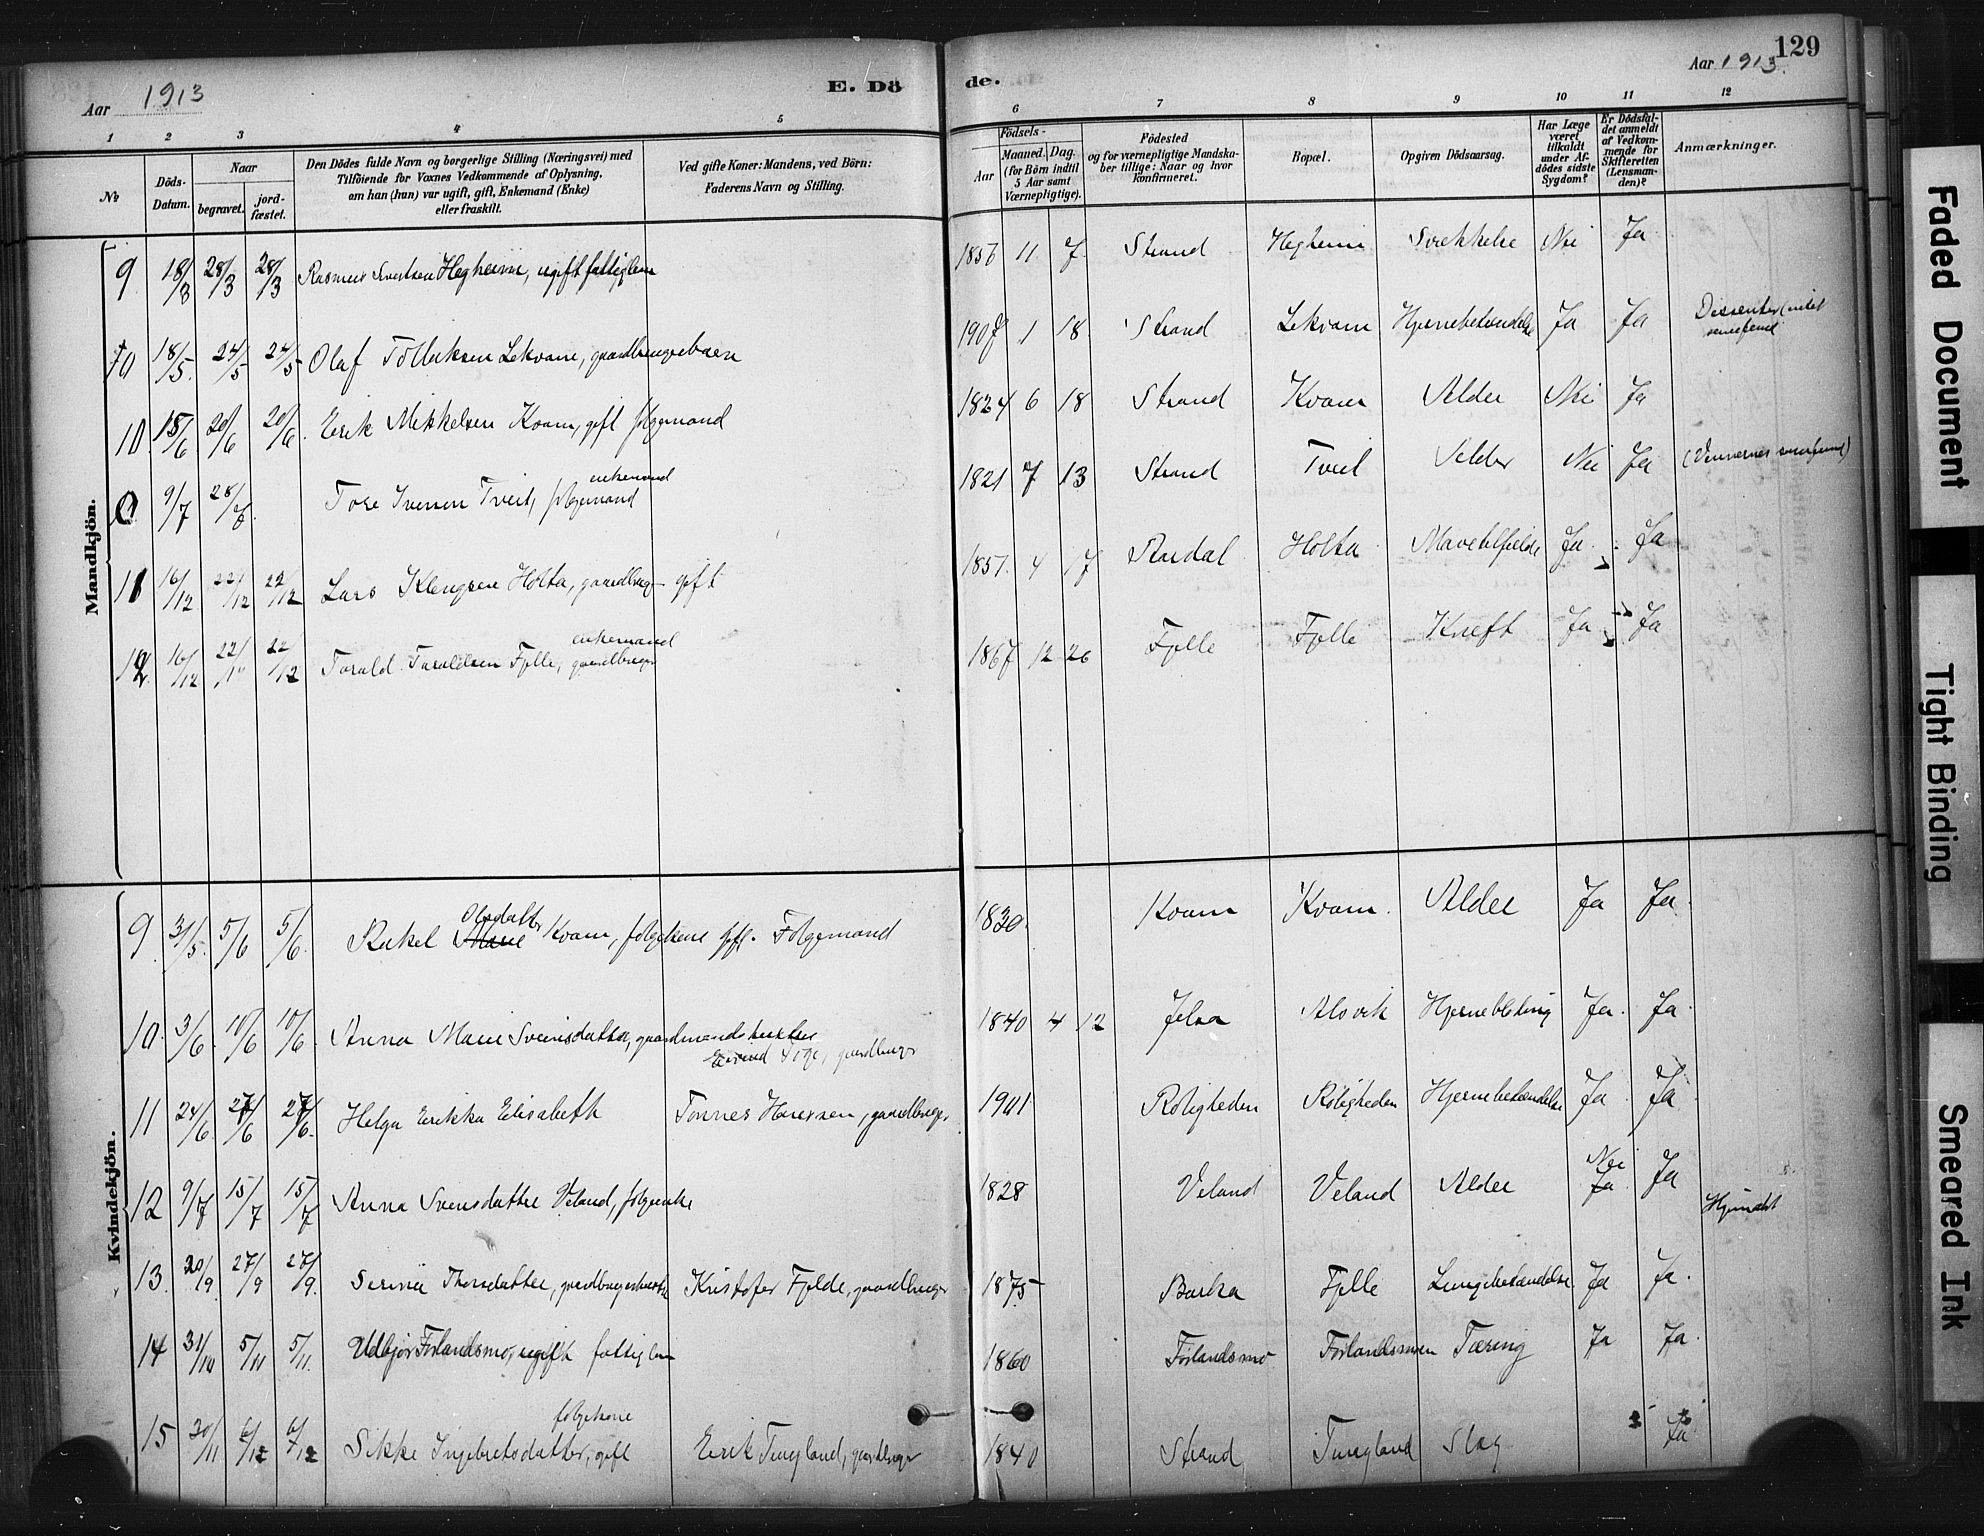 Aar 1913
E. Dö
de.
Aar 1913.
129
1 2 3 4 5 6 7 8 9 10 11 12
Nr
Döds-
Datum.
Naar
begravet.
jord-
fæstet.
Den Dödes fulde Navn og borgerlige Stilling (Næringsvei) med
Tilföiende for Voxnes Vedkommende af Oplysning,
om han (hun) var ugift, gift, Enkemand (Enke)
eller fraskilt.
Ved gifte Koner: Mandens, ved Börn:
Faderens Navn og Stilling.
Födsels-
Aar
Maaned. Dag.
(for Börn indtil
5 Aar samt
Værnepligtige).
Födested
og for værnepligtige Mandska-
ber tillige: Naar og hvor
konfirmeret.
Bopæl.
Opgiven Dödsaarsag.
Har Læge
været
tilkaldt
under Af-
dödes sidste
Sygdom?
Er Dödsfal-
det anmeldt
af Vedkom-
mende for
Skifteretten
(Lensman-
den)?
Anmærkninger.
Mandkjön.
9 18/3 28/3 28/3 Rasmus Sivertsen Hegheim, ugift fattiglem 1856 11 7 Strand Hegheim Svækkelse Nei Ja
10 18/5 24/5 24/5 Olaf Tollaksen Lekvam, gaardbrugerbarn 1907 1 18 Strand Lekvam Hjernebetændelse Ja Ja Dissenter
10 15/6 20/6 20/6 Erik Mikkelsen Kvam, gift folgemand 1824 6 18 Strand Kvam Alder Nei Ja
9/7 Tore Tveit, folgemand enkemand 1821 7 13 Strand Tveit Alder Nei Ja (Vennernes samfund)
11 16/12 22/12 22/12 Lars Klengsen Holta, gaardbrug- gift 1851 4 17 Aardal Holta Ja Ja
12 16/12 22/ 22/12 Torald Toraldsen Fjelle, gaardbruger enkemand 1867 12 26 Fjelle Fjelle Kræft Ja Ja
Kvindekjön.
9 31/5 5/6 5/6 Rakel Marie Olsdatter Kvam, folgekone gft. Folgemand 1830 Kvam Kvam Alder Ja Ja
10 3/6 10/6 10/6 Anna Marie Sveinsdatter, gaardmandshustru
gaardbruger 1840 4 12 Jelsa Alsvik Hjerneblödning Ja Ja
11 24/6 27/6 27/6 Helga Erikka Elisabeth Tonnes Hansen, gaardbruger 1901 Roligheden Roligheden Hjernebetændelse Ja Ja
12 9/7 15/7 15/7 Anna Svensdatter Veland, folgeenke 1828 Veland Veland Alder Nei Ja Ja
13 20/9 27/9 27/9 Serina Thorsdatter, gaardbrugerhustru Kristofer Fjelde, gaardbruger 1875 Barka Fjelle Lungebetændelse Ja Ja
14 31/10 5/11 5/11 Udbjor Forlandsmo, ugift fattiglem 1860 Forlandsmo Forlandsmoen Tæring Ja Ja
15 30/11 6/12 6/12 Sikke Ingebretsdatter, gift folgekone Eirik Tungland, gaardbruger 1840 Strand Tungland Slag Ja
Faded Document
Tight Binding
Smeared Ink